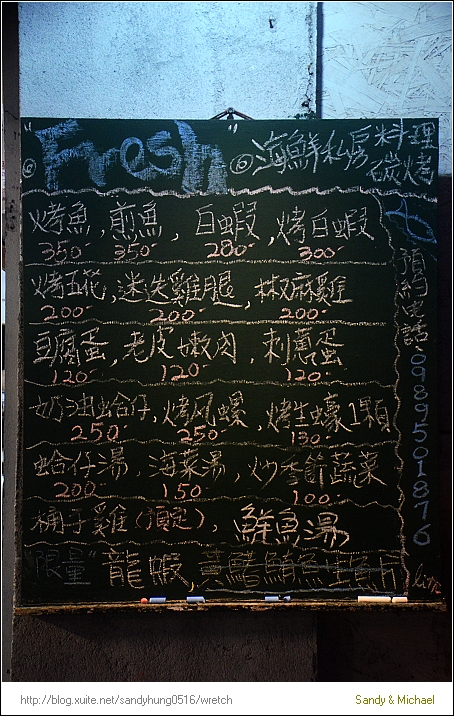 "Fresh" 海鮮私房料理
碳烤
烤魚, 煎魚, 白蝦, 烤白蝦
350 350 280 300
烤五花, 迷迭雞腿, 椒麻雞
200 200 200
豆腐蛋, 老皮嫩肉, 刺蔥蛋
120 120 120
奶油蛤仔, 烤風螺, 烤生蠔1顆
250 250 130
蛤仔湯, 海菜湯, 炒季節蔬菜
200 150 100
桶子雞(預定), 鮮魚湯
"限量" 龍蝦, 黃鰭鮪魚生魚片
預約電話:0989501876
http://blog.xuite.net/sandyhung0516/wretch
Sandy & Michael